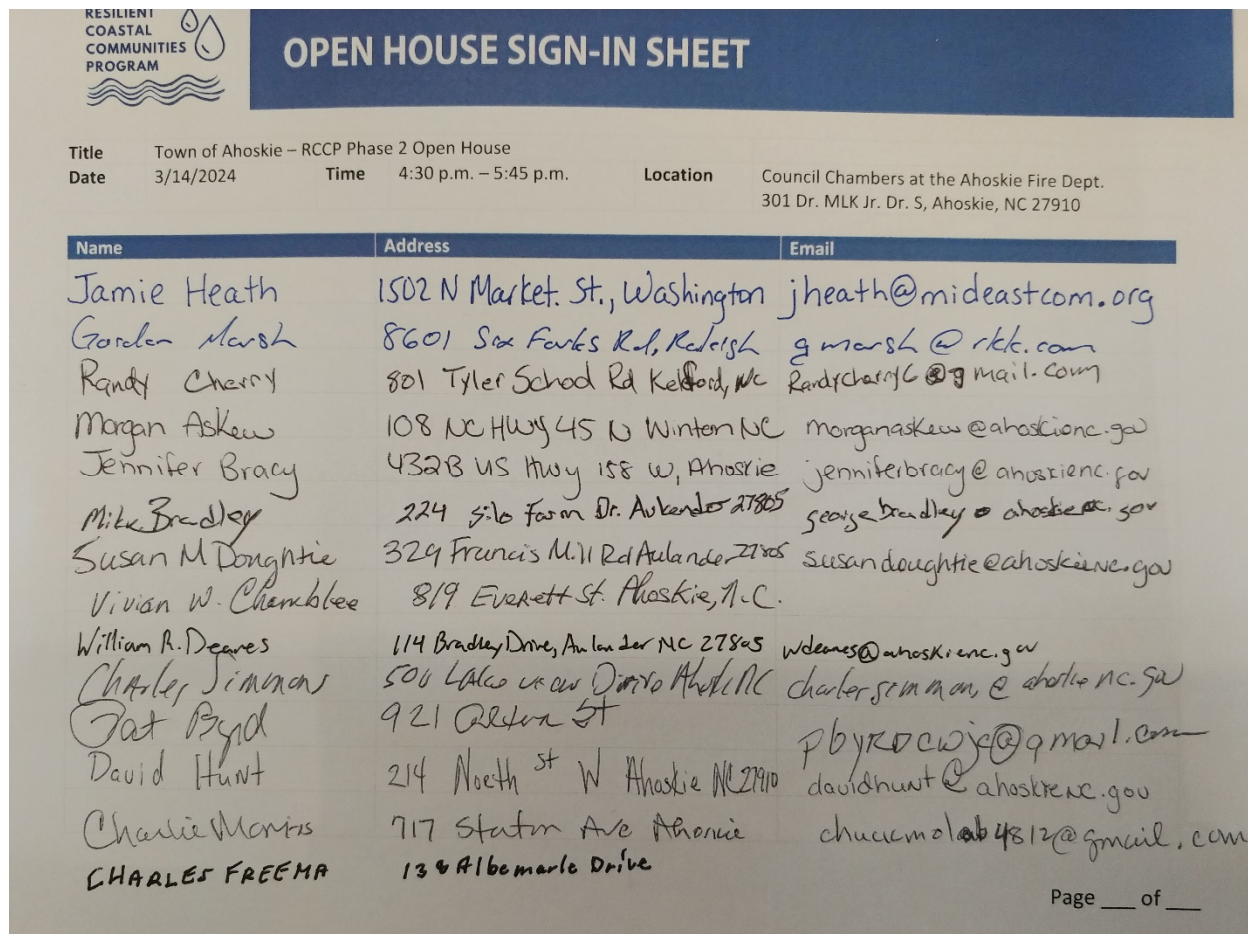 RESILIENT
COASTAL
COMMUNITIES
PROGRAM
OPEN HOUSE SIGN-IN SHEET
Title Town of Ahoskie – RCCP Phase 2 Open House
Date 3/14/2024 Time 4:30 p.m. – 5:45 p.m. Location Council Chambers at the Ahoskie Fire Dept.
301 Dr. MLK Jr. Dr. S, Ahoskie, NC 27910
Name Address Email
Jamie Heath 1502 N Market. St., Washington jheath@mideastcom.org
Gordon Marsh 8601 Six Forks Rd, Raleigh gmarsh@rkk.com
Randy Cherry 801 Tyler School Rd Kelford, NC Randycherry6@gmail.com
Morgan Askew 108 NC HWY 45 N Winton NC morganaskew@ahoskienc.gov
Jennifer Bracy 432B US Hwy 158 W, Ahoskie jenniferbracy@ahoskienc.gov
Mike Bradley 224 Silo Farm Dr. Aulander 27805 georgebradley@ahoskienc.gov
Susan M Doughtie 329 Francis Mill Rd Aulander 27805 susandoughtie@ahoskienc.gov
Vivian W. Chamblee 819 Everett St. Ahoskie, N.C.
William R. Deanes 114 Bradley Drive, Aulander NC 27805 wdeanes@ahoskienc.gov
Charles Simmons 500 Drive NC
Pat Byrd 921 St pbyrdcwjc@gmail.com
David Hunt 214 North St W Ahoskie NC 27910 davidhunt@ahoskienc.gov
Charlie Morris 717 Ave Ahoskie
CHARLES FREEMA 138 Albemarle Drive
Page ___ of ___